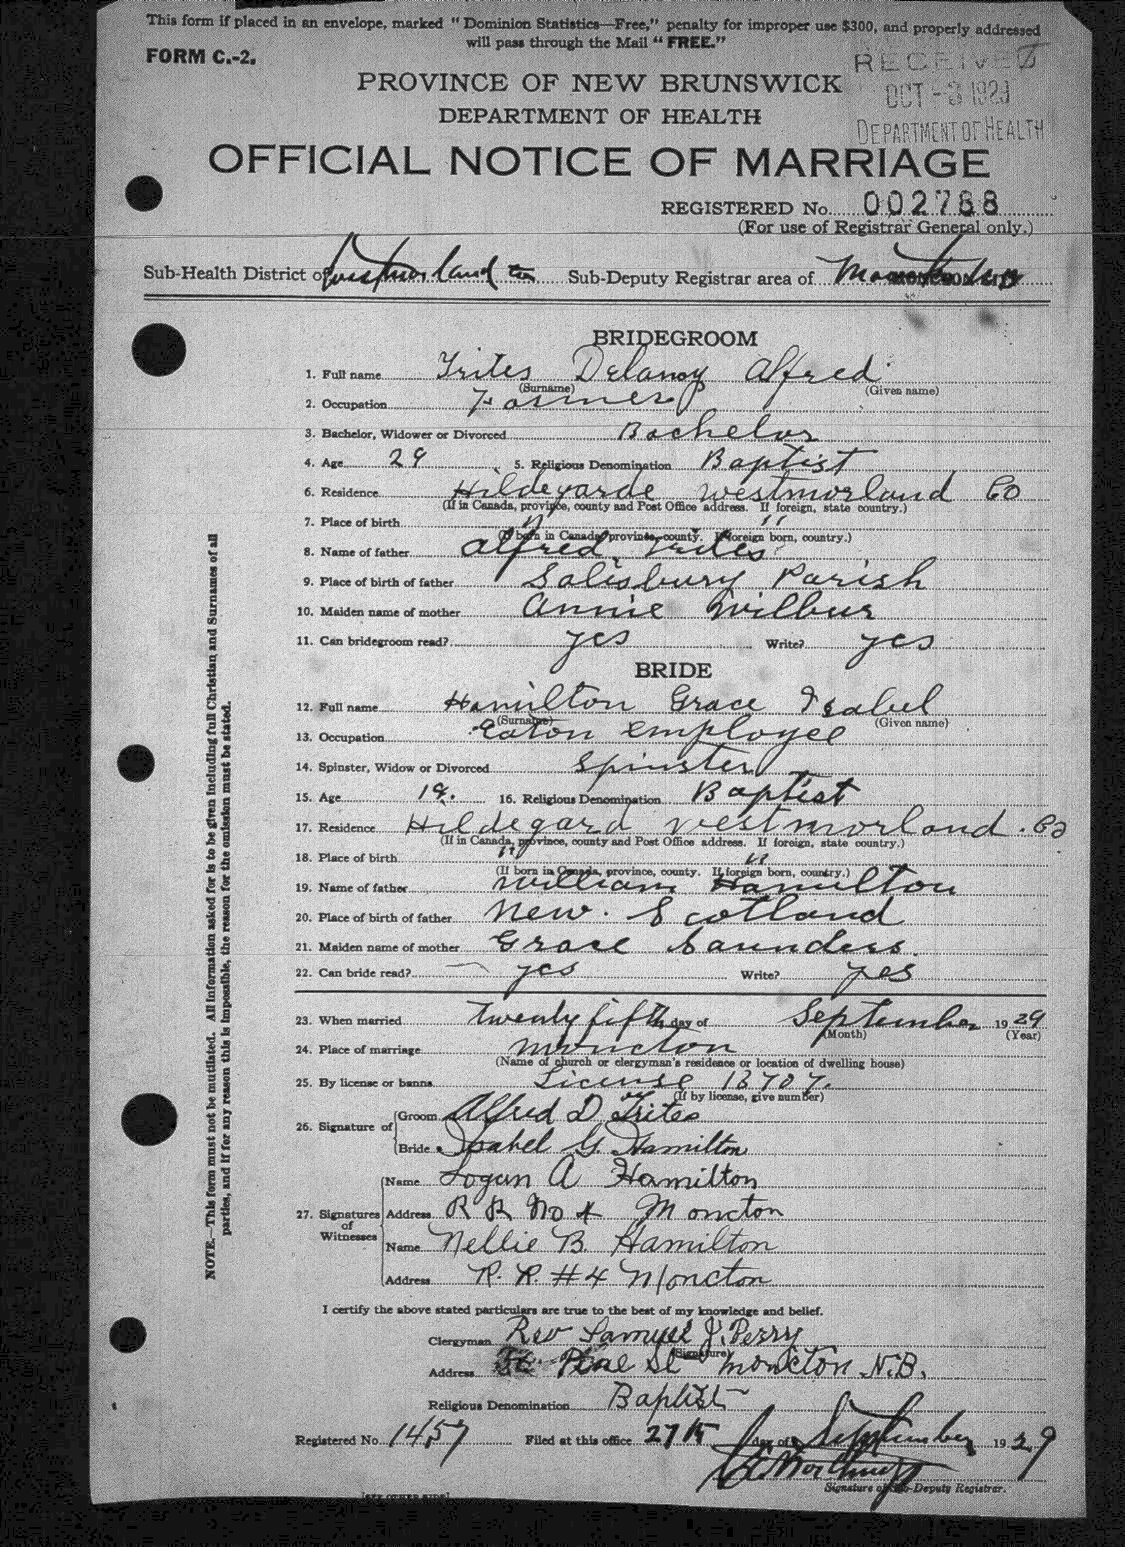 This form if placed in an envelope, marked "Dominion Statistics—Free," penalty for improper use $300, and properly addressed
will pass through the Mail "FREE."
FORM C.-2.
RECEIVED
OCT -3 1929
DEPARTMENT OF HEALTH
PROVINCE OF NEW BRUNSWICK
DEPARTMENT OF HEALTH
OFFICIAL NOTICE OF MARRIAGE
REGISTERED No. 002788
(For use of Registrar General only.)
Sub-Health District of Westmorland Co Sub-Deputy Registrar area of Moncton
BRIDEGROOM
1. Full name Trites Delancy Alfred
(Surname) (Given name)
2. Occupation Farmer
3. Bachelor, Widower or Divorced Bachelor
4. Age 29 5. Religious Denomination Baptist
6. Residence Hildegarde Westmorland Co
(If in Canada, province, county and Post Office address. If foreign, state country.)
7. Place of birth " "
(If born in Canada, province, county. If foreign born, country.)
8. Name of father Alfred Trites
9. Place of birth of father Salisbury Parish
10. Maiden name of mother Annie Wilbur
11. Can bridegroom read? yes Write? yes
BRIDE
12. Full name Hamilton Grace Isabel
(Surname) (Given name)
13. Occupation Eaton employee
14. Spinster, Widow or Divorced Spinster
15. Age 19. 16. Religious Denomination Baptist
17. Residence Hildegard Westmorland. Co
(If in Canada, province, county and Post Office address. If foreign, state country.)
18. Place of birth " "
(If born in Canada, province, county. If foreign born, country.)
19. Name of father William Hamilton
20. Place of birth of father New. Scotland
21. Maiden name of mother Grace Saunders.
22. Can bride read? yes Write? yes
23. When married twenty fifth day of September 1929
(Month) (Year)
24. Place of marriage Moncton
(Name of church or clergyman's residence or location of dwelling house)
25. By license or banns License 13707.
(If by license, give number)
26. Signature of Groom Alfred D Trites
Bride Isabel G. Hamilton
27. Signatures of Witnesses
Name Logan A Hamilton
Address R R No 4 Moncton
Name Nellie B. Hamilton
Address R. R. #4 Moncton
I certify the above stated particulars are true to the best of my knowledge and belief.
Clergyman Rev Samuel J. Perry
(Signature)
Address Pine St Moncton N.B.
Religious Denomination Baptist
Registered No. 1457 Filed at this office 27th day of September 1929
Signature of Sub-Deputy Registrar.
NOTE.—This form must not be mutilated. All information asked for is to be given including full Christian and Surnames of all
parties, and if for any reason this is impossible, the reason for the omission must be stated.